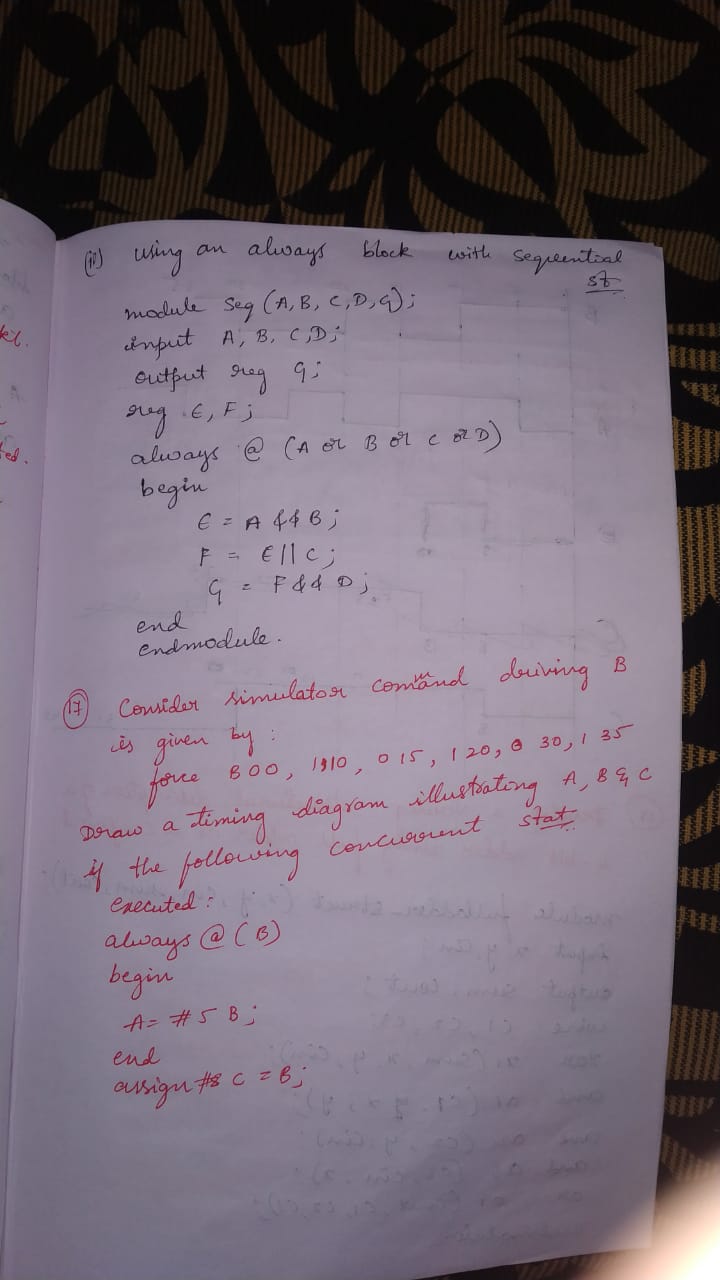 (ii) using an always block with sequential
st.
module seq (A, B, C, D, G);
input A, B, C, D;
output reg G;
reg E, F;
always @ (A or B or C or D)
begin
E = A && B;
F = E || C;
G = F && D;
end
endmodule.
(17) Consider simulator command driving B
is given by :
force B 0 0, 1 10, 0 15, 1 20, 0 30, 1 35
Draw a timing diagram illustrating A, B & C
if the following concurrent stat.
executed :
always @ (B)
begin
A = #5 B;
end
assign #8 C = B;